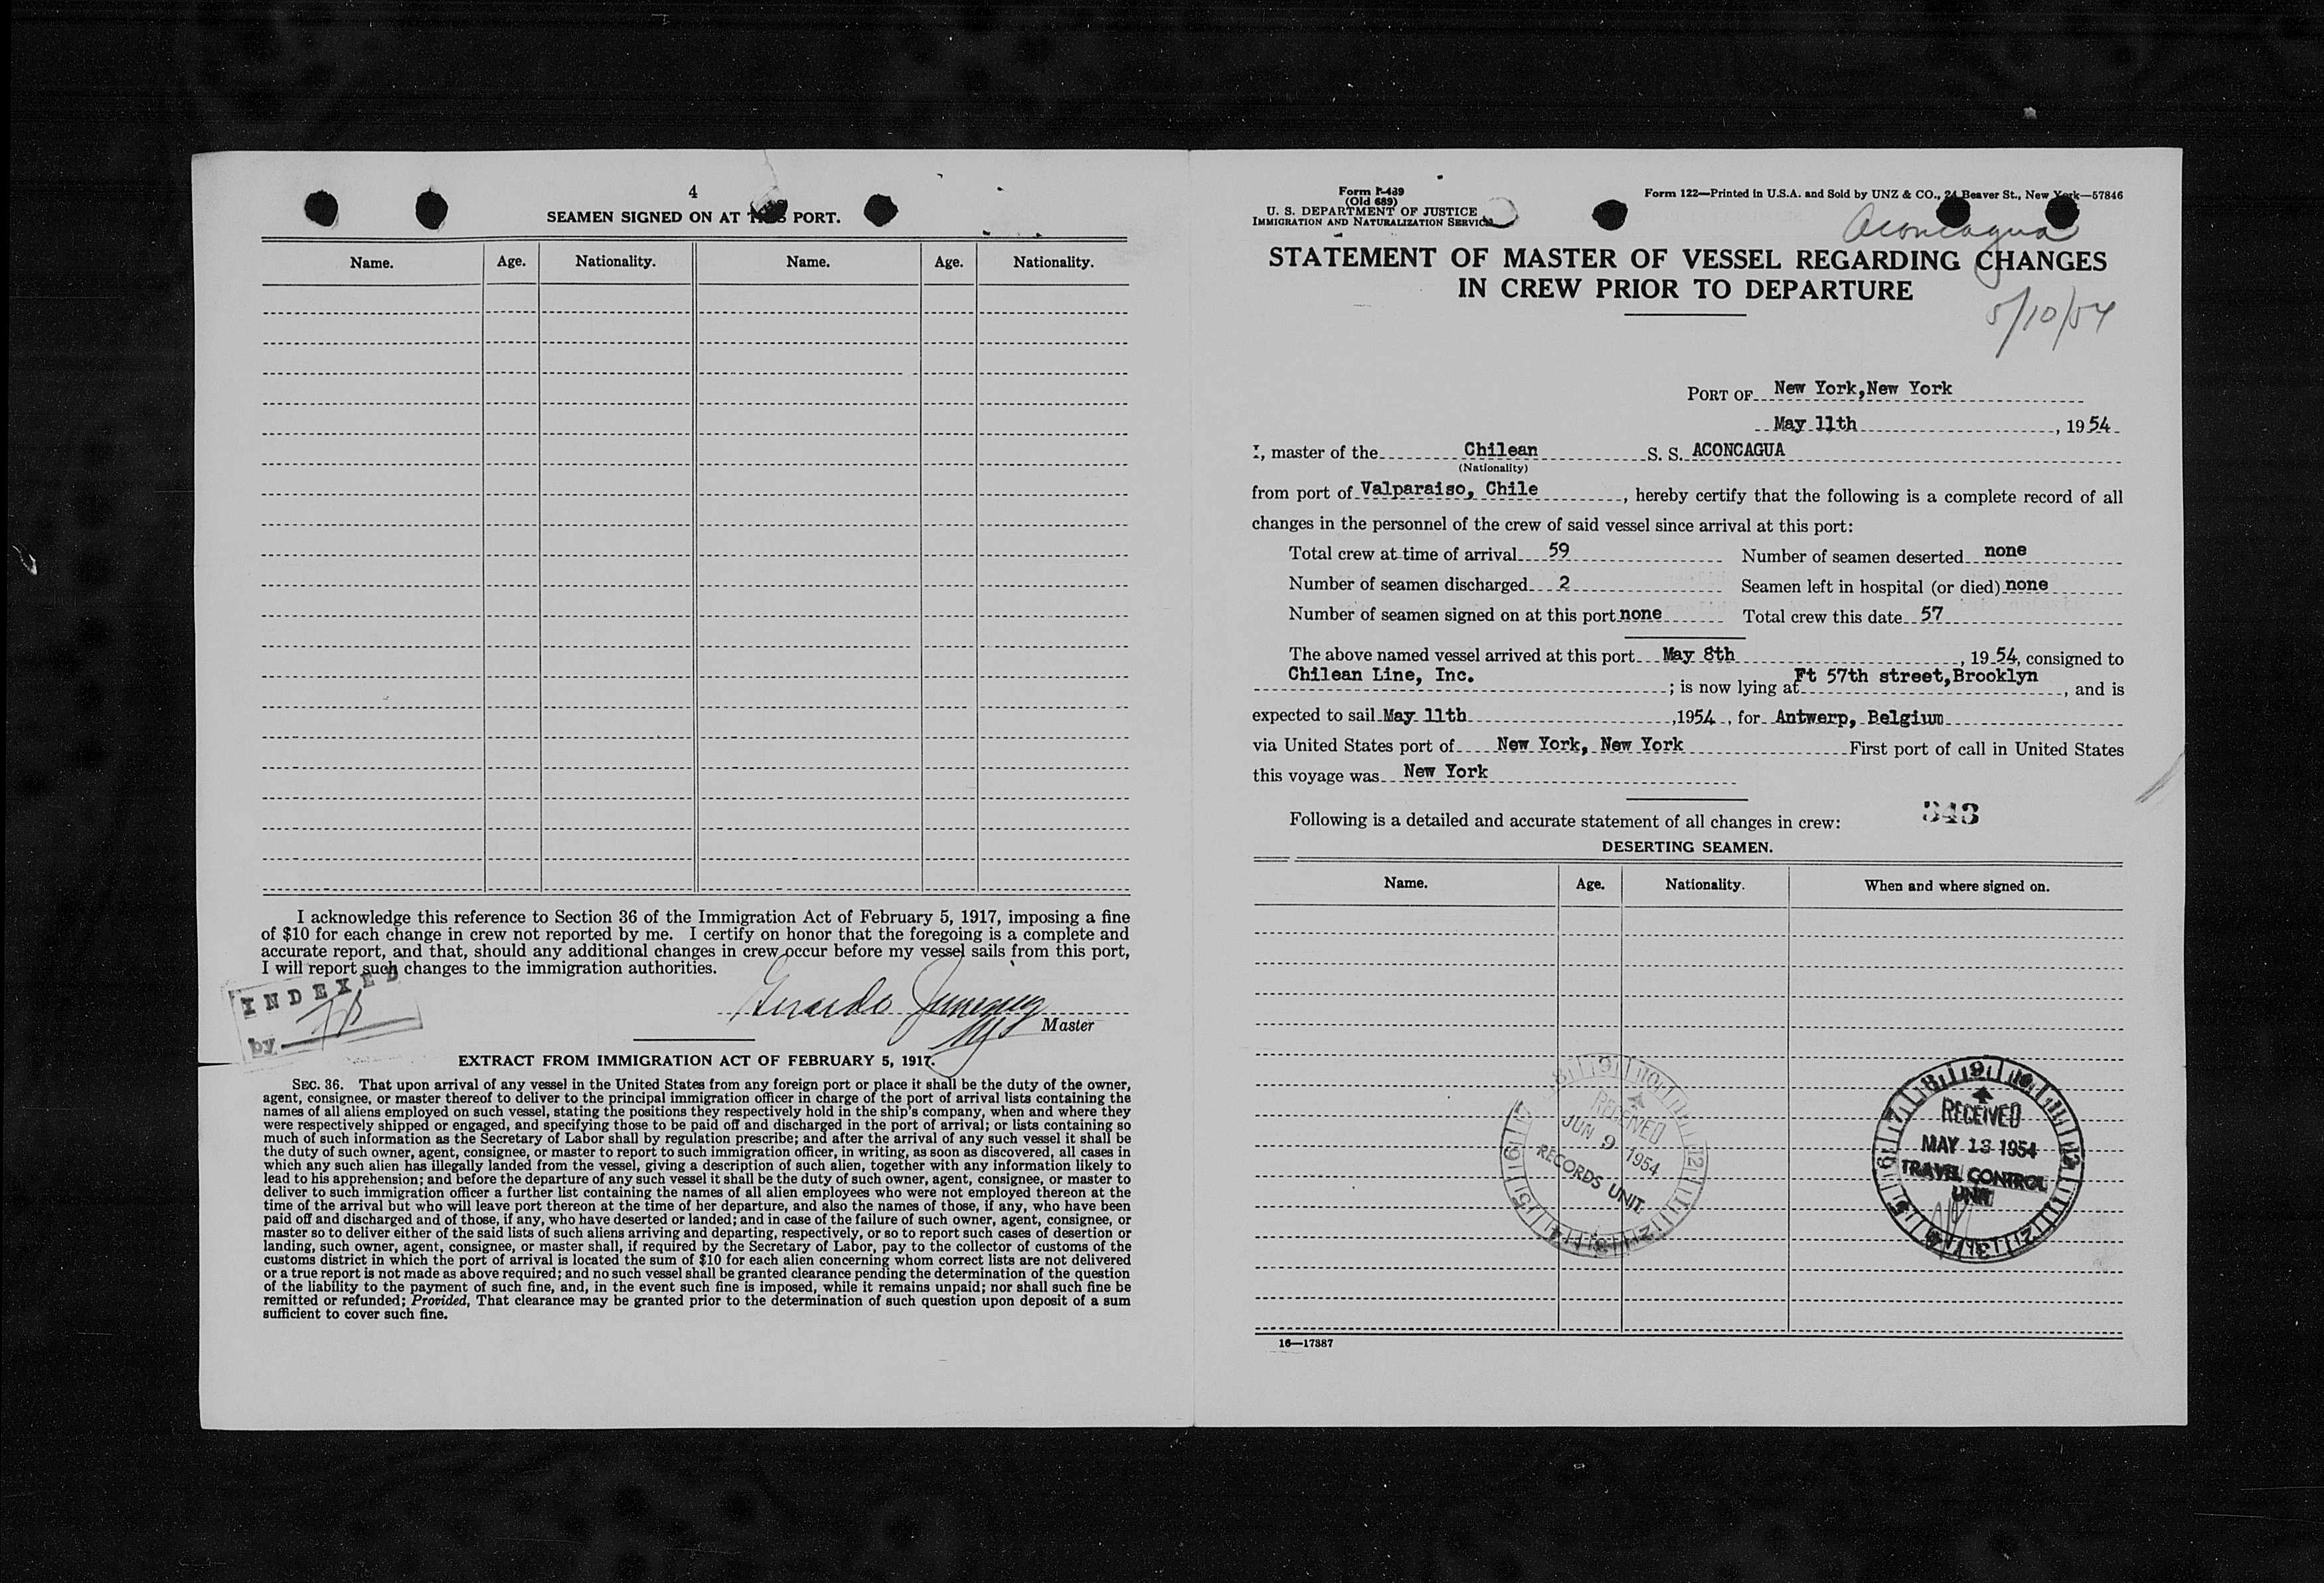 4
SEAMEN SIGNED ON AT THIS PORT.
Name. Age. Nationality. Name. Age. Nationality.
I acknowledge this reference to Section 36 of the Immigration Act of February 5, 1917, imposing a fine
of $10 for each change in crew not reported by me. I certify on honor that the foregoing is a complete and
accurate report, and that, should any additional changes in crew occur before my vessel sails from this port,
I will report such changes to the immigration authorities.
INDEXED
by
Gerardo
Master
EXTRACT FROM IMMIGRATION ACT OF FEBRUARY 5, 1917.
SEC. 36. That upon arrival of any vessel in the United States from any foreign port or place it shall be the duty of the owner,
agent, consignee, or master thereof to deliver to the principal immigration officer in charge of the port of arrival lists containing the
names of all aliens employed on such vessel, stating the positions they respectively hold in the ship's company, when and where they
were respectively shipped or engaged, and specifying those to be paid off and discharged in the port of arrival; or lists containing so
much of such information as the Secretary of Labor shall by regulation prescribe; and after the arrival of any such vessel it shall be
the duty of such owner, agent, consignee, or master to report to such immigration officer, in writing, as soon as discovered, all cases in
which any such alien has illegally landed from the vessel, giving a description of such alien, together with any information likely to
lead to his apprehension; and before the departure of any such vessel it shall be the duty of such owner, agent, consignee, or master to
deliver to such immigration officer a further list containing the names of all alien employees who were not employed thereon at the
time of the arrival but who will leave port thereon at the time of her departure, and also the names of those, if any, who have been
paid off and discharged and of those, if any, who have deserted or landed; and in case of the failure of such owner, agent, consignee, or
master so to deliver either of the said lists of such aliens arriving and departing, respectively, or so to report such cases of desertion or
landing, such owner, agent, consignee, or master shall, if required by the Secretary of Labor, pay to the collector of customs of the
customs district in which the port of arrival is located the sum of $10 for each alien concerning whom correct lists are not delivered
or a true report is not made as above required; and no such vessel shall be granted clearance pending the determination of the question
of the liability to the payment of such fine, and, in the event such fine is imposed, while it remains unpaid; nor shall such fine be
remitted or refunded; Provided, That clearance may be granted prior to the determination of such question upon deposit of a sum
sufficient to cover such fine.
Form I-489
(Old 689)
U. S. DEPARTMENT OF JUSTICE
IMMIGRATION AND NATURALIZATION SERVICE
Form 122—Printed in U.S.A. and Sold by UNZ & CO., 24 Beaver St., New York—57846
Aconcagua
STATEMENT OF MASTER OF VESSEL REGARDING CHANGES
IN CREW PRIOR TO DEPARTURE
5/10/54
PORT OF New York,New York
May 11th, 1954
I, master of the Chilean S. S. ACONCAGUA
(Nationality)
from port of Valparaiso, Chile, hereby certify that the following is a complete record of all
changes in the personnel of the crew of said vessel since arrival at this port:
Total crew at time of arrival 59 Number of seamen deserted none
Number of seamen discharged 2 Seamen left in hospital (or died) none
Number of seamen signed on at this port none Total crew this date 57
The above named vessel arrived at this port May 8th, 1954, consigned to
Chilean Line, Inc.; is now lying at Ft 57th street,Brooklyn, and is
expected to sail May 11th, 1954, for Antwerp, Belgium
via United States port of New York, New York First port of call in United States
this voyage was New York
343
Following is a detailed and accurate statement of all changes in crew:
DESERTING SEAMEN.
Name. Age. Nationality. When and where signed on.
RECEIVED
JUN 9 1954
RECORDS UNIT
RECEIVED
MAY 13 1954
TRAVEL CONTROL
UNIT
16—17387